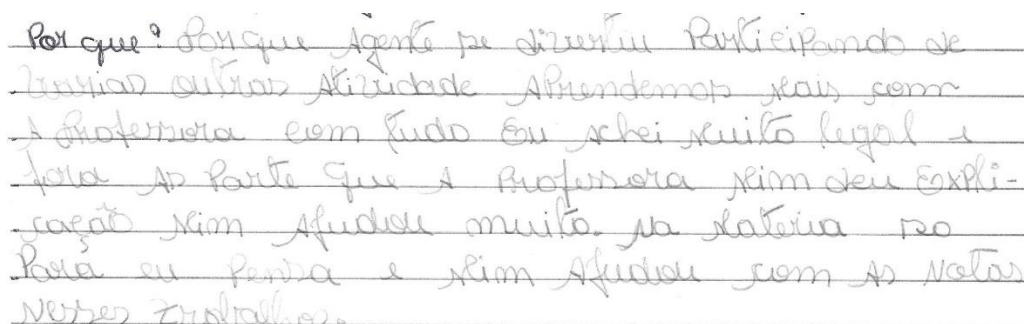 Por que? Porque Agente se divertiu Participando de
varias outras Atividade Aprendemos Mais com
A Professora com tudo Eu Achei Muito legal e
fora As Parte que A Professora Mim deu Expli-
cação Mim Ajudou muito. Na Materia so
Para eu Pensa e Mim Ajudou com As Notas
Nesses trabalhos.